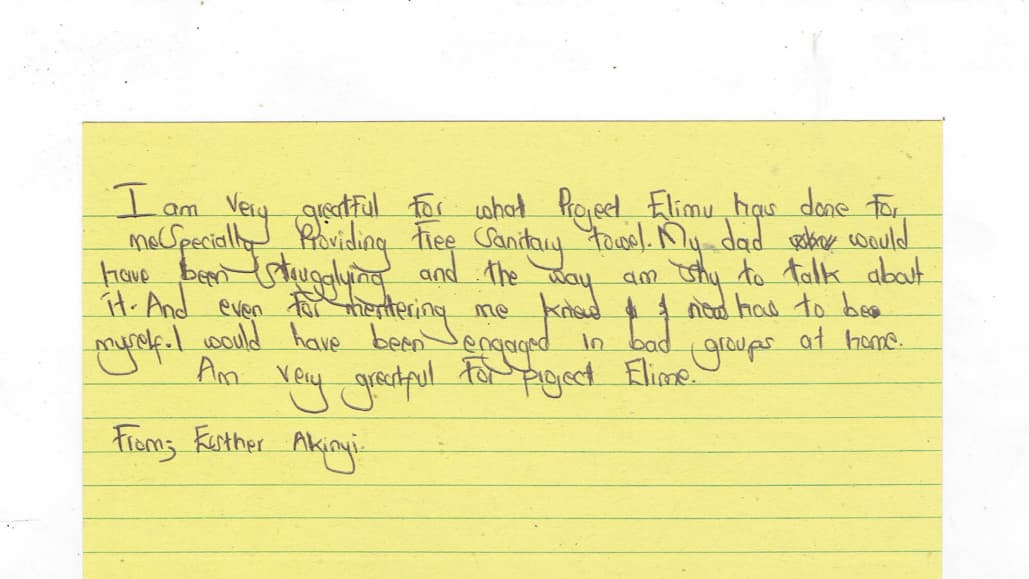 I am very greatful for what Project Elimu has done for
me Specially Providing free Sanitary towel. My dad would
have been strugglying and the way am shy to talk about
it. And even for mentering me know I now has to be
myself. I would have been engaged in bad groups at home.
Am very greatful for project Elime.
From; Esther Akinyi.